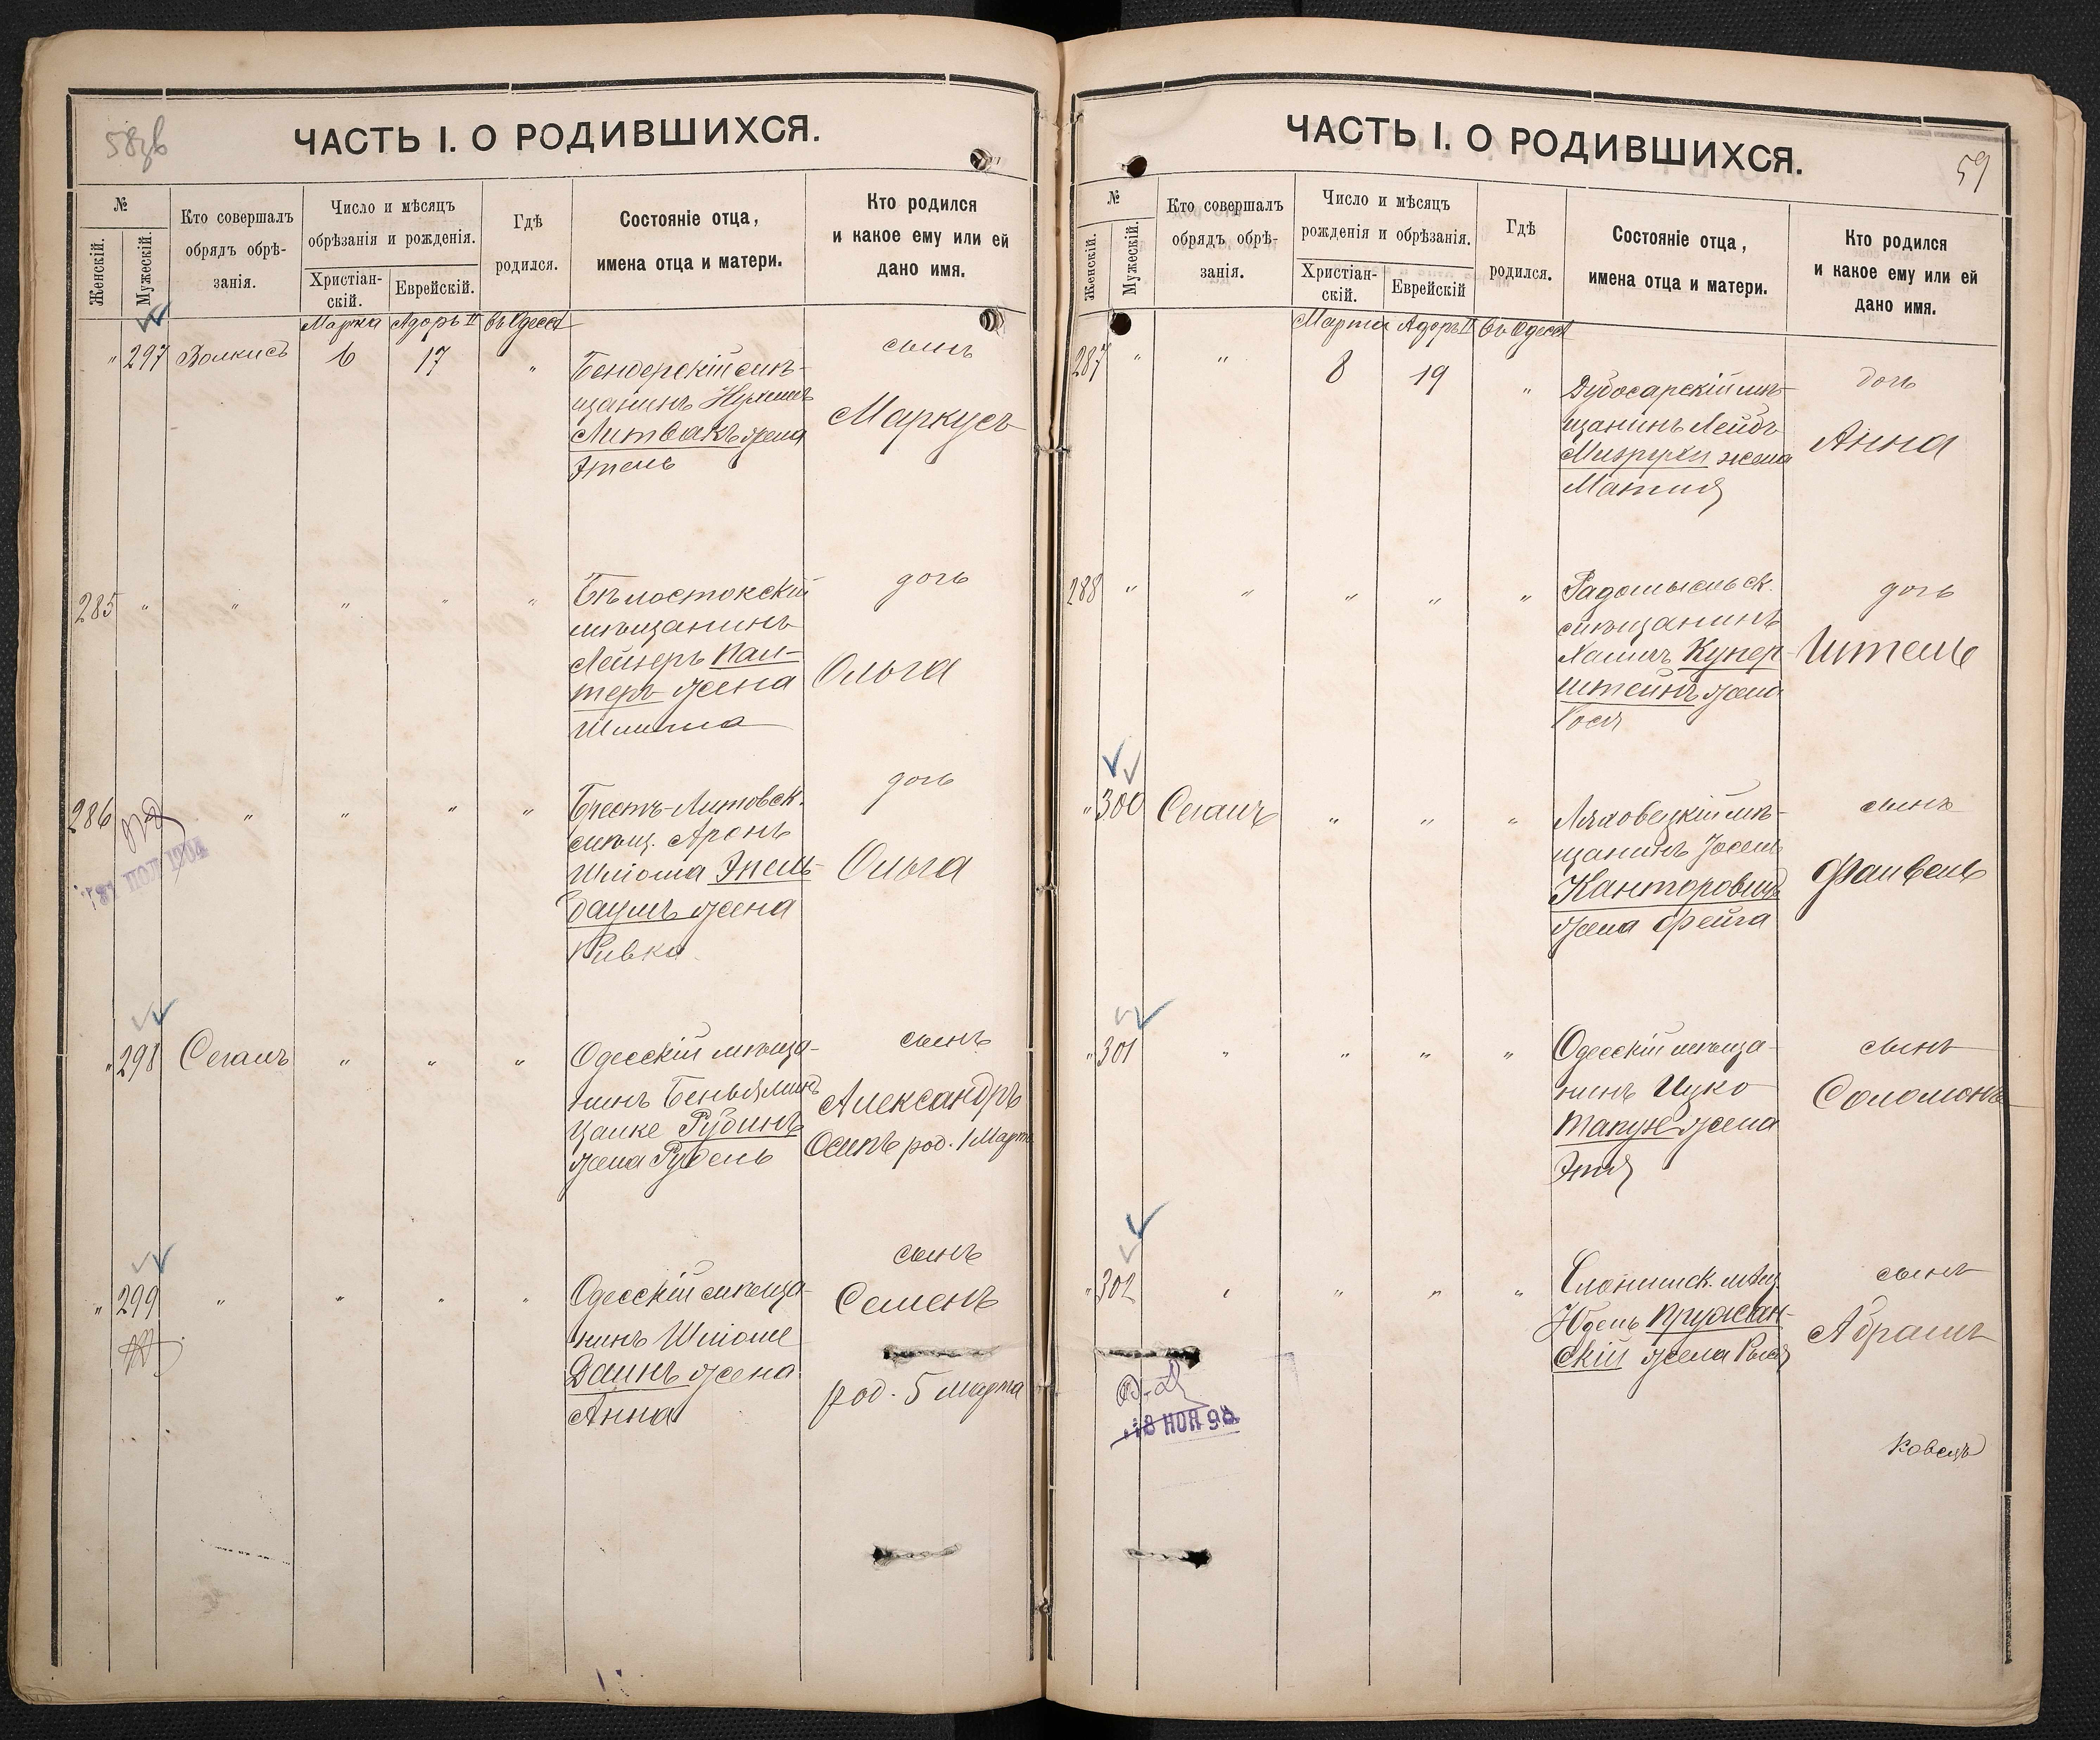 58об
ЧАСТЬ I. О РОДИВШИХСЯ.
№
Женскій.
Мужескій.
Кто совершалъ
обрядъ обрѣ-
занія.
Число и мѣсяцъ
обрѣзанія и рожденія.
Христіан-
скій.
Еврейскій.
Гдѣ
родился.
Состояніе отца,
имена отца и матери.
Кто родился
и какое ему или ей
дано имя.
Марта Адоръ II въ Одессѣ
" 297 6 17 "
Бендерскій мѣ-
щанинъ
Литвакъ жена
Этель
сынъ
Маркусъ
285 " " " " "
Бѣлостокскій
мѣщанинъ
Лейзеръ Кан-
теръ жена
дочь
Ольга
286 " " " "
Брестъ-Литовск.
мѣщ. Аронъ
Шліома Эпель-
баумъ жена
Ривка
дочь
Ольга
" 298 Сегалъ " " "
Одесскій мѣща-
нинъ Беньяминъ
Рубинъ
жена
сынъ
Александръ
Осипъ род. 1 Марта
" 299 " " " "
Одесскій мѣща-
нинъ Шліоме
жена
Анна
сынъ
Семенъ
род. 5 марта
59
ЧАСТЬ I. О РОДИВШИХСЯ.
№
Женскій.
Мужескій.
Кто совершалъ
обрядъ обрѣ-
занія.
Число и мѣсяцъ
рожденія и обрѣзанія.
Христіан-
скій.
Еврейскій
Гдѣ
родился.
Состояніе отца,
имена отца и матери.
Кто родился
и какое ему или ей
дано имя.
Марта Адоръ II въ Одессѣ
287 " " 8 19 "
Дубосарскій мѣ-
щанинъ Лейбъ
Мизрухи жена
дочь
Анна
288 " " " " "
Радомысльск.
мѣщанинъ
Хаимъ Купер-
штейнъ жена
Рося
дочь
" 300 Сегалъ " " "
Ляховецкій мѣ-
щанинъ Іосель
Канторовичъ
жена Фейга
сынъ
Файвель
" 301 " " " "
Одесскій мѣща-
нинъ Ицко
жена
Этля
сынъ
Соломонъ
" 302 " " " "
Слонимск. мѣщ.
Юдель Пружан-
скій жена
сынъ
Абрамъ
18 НОЯ 98